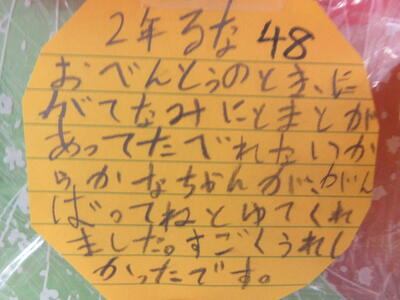 2年るな 48
おべんとうのとき、に
がてなみにとまとが
あってたべれないか
ら、かなちゃんが、がん
ばってねとゆてくれ
ました。すごくうれし
かったです。